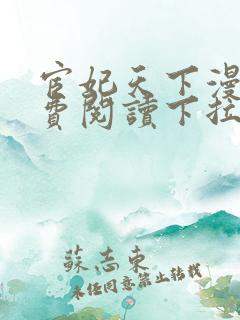 宦妃天下漫
費閱讀下拉
蘇志東
未經同意禁止轉載